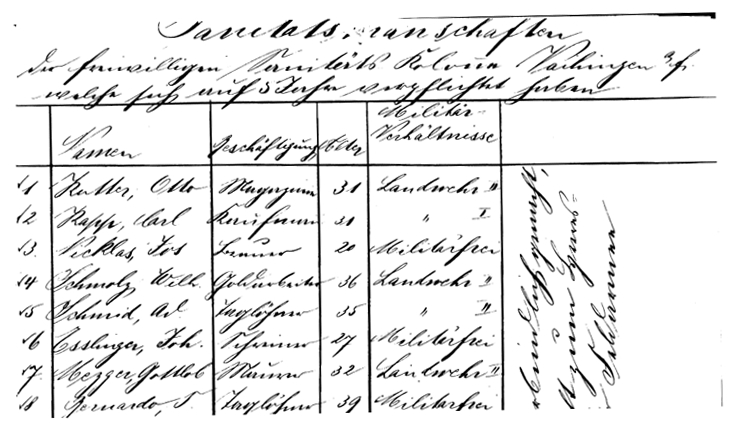 Sanitätsmannschaften
der freiwilligen Sanitäts Kolonne Vaihingen a/F.
welche sich auf 5 Jahre verpflichtet haben
Namen Beschäftigung Alter Militär-Verhältnisse
11 Kutter, Otto 31 Landwehr II
12 Kapp, Carl Kaufmann 31 " I
13. Nicklas, Jos 20 Militärfrei
14 Schmolz, Wilh. Goldarbeiter 36 Landwehr II
15 Schmid, Ad. Taglöhner 35 " II
16 Esslinger, Joh. Schreiner 27 Militärfrei
17. Mezger, Gottlob Maurer 32 Landwehr II
18 Bernardo, T. Taglöhner 39 Militärfrei